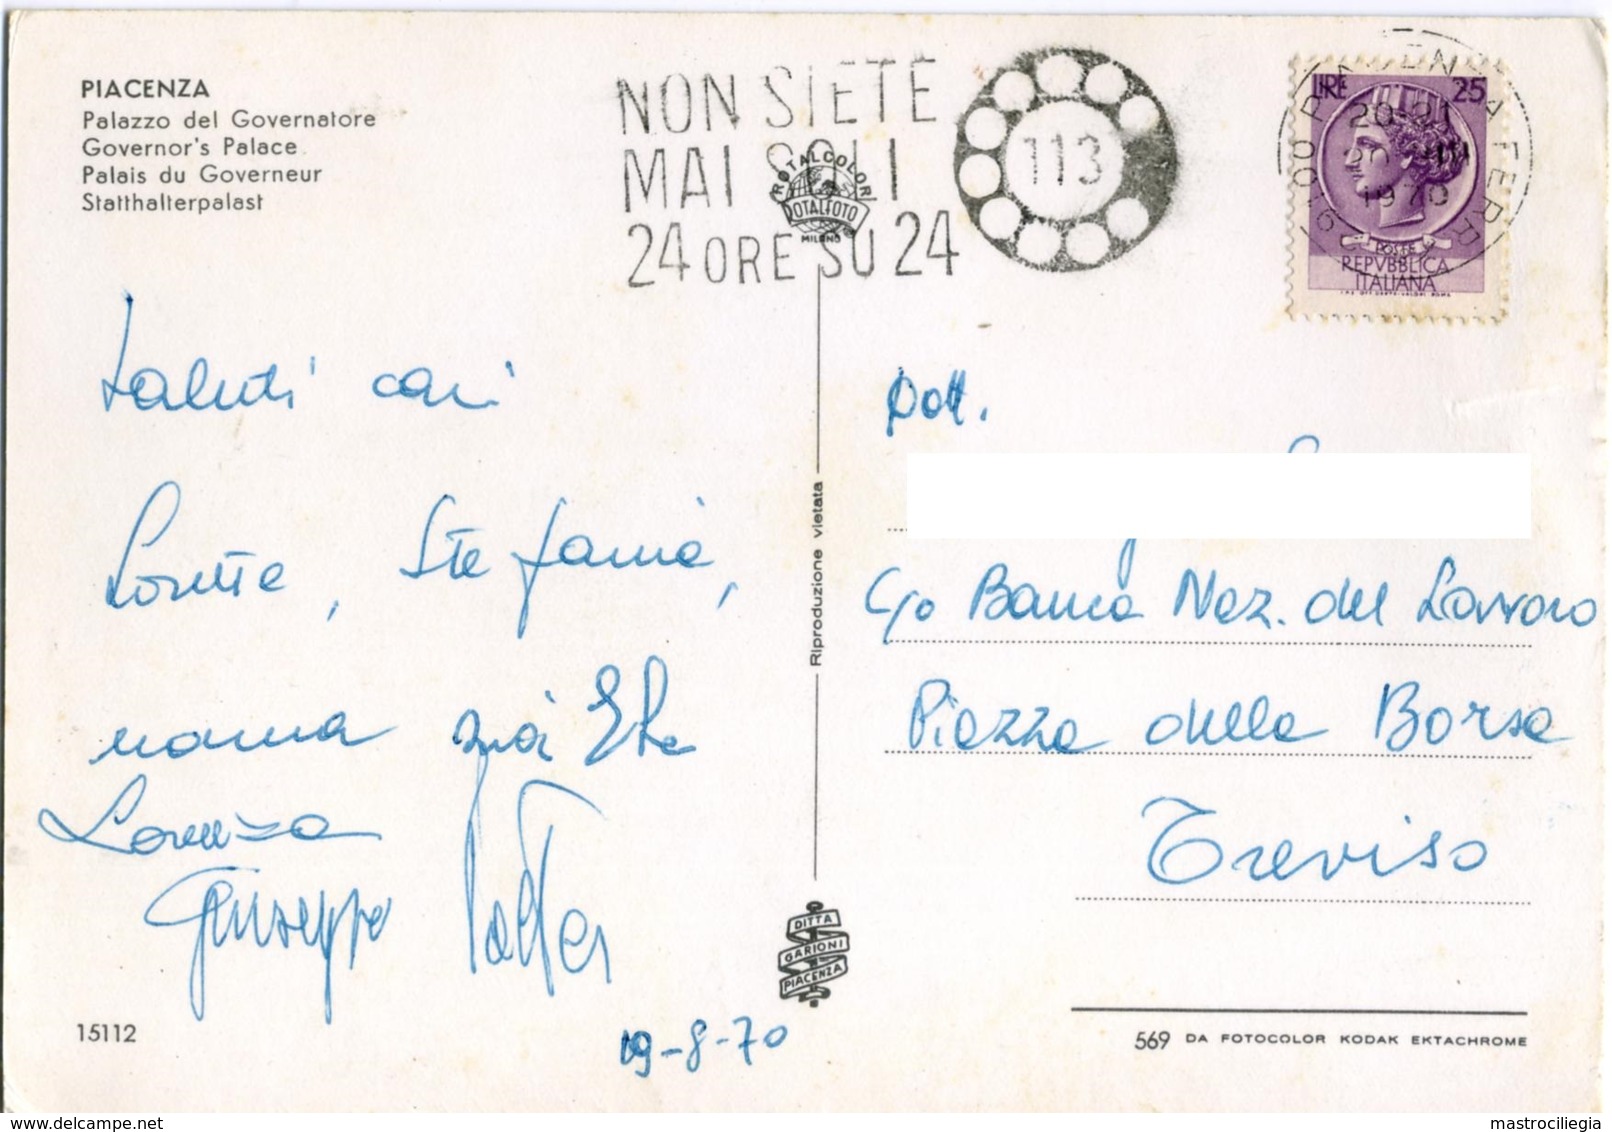 PIACENZA
Palazzo del Governatore
Governor's Palace
Palais du Governeur
Statthalterpalast
NON SIETE
MAI SOLI
24 ORE SU 24
113
ROTALCOLOR
ROTALFOTO
MILANO
LIRE 25
POSTE
REPVBBLICA
ITALIANA
PIACENZA FERR.
20-21
1970
Saluti cari
Loretta, Stefania,
nonna zia
Lorenza
Giuseppe Walter
19-8-70
Riproduzione vietata
DITTA
GARIONI
PIACENZA
Dott.
c/o Banca Naz. del Lavoro
Piazza della Borsa
Treviso
15112
569 DA FOTOCOLOR KODAK EKTACHROME
mastrociliegia